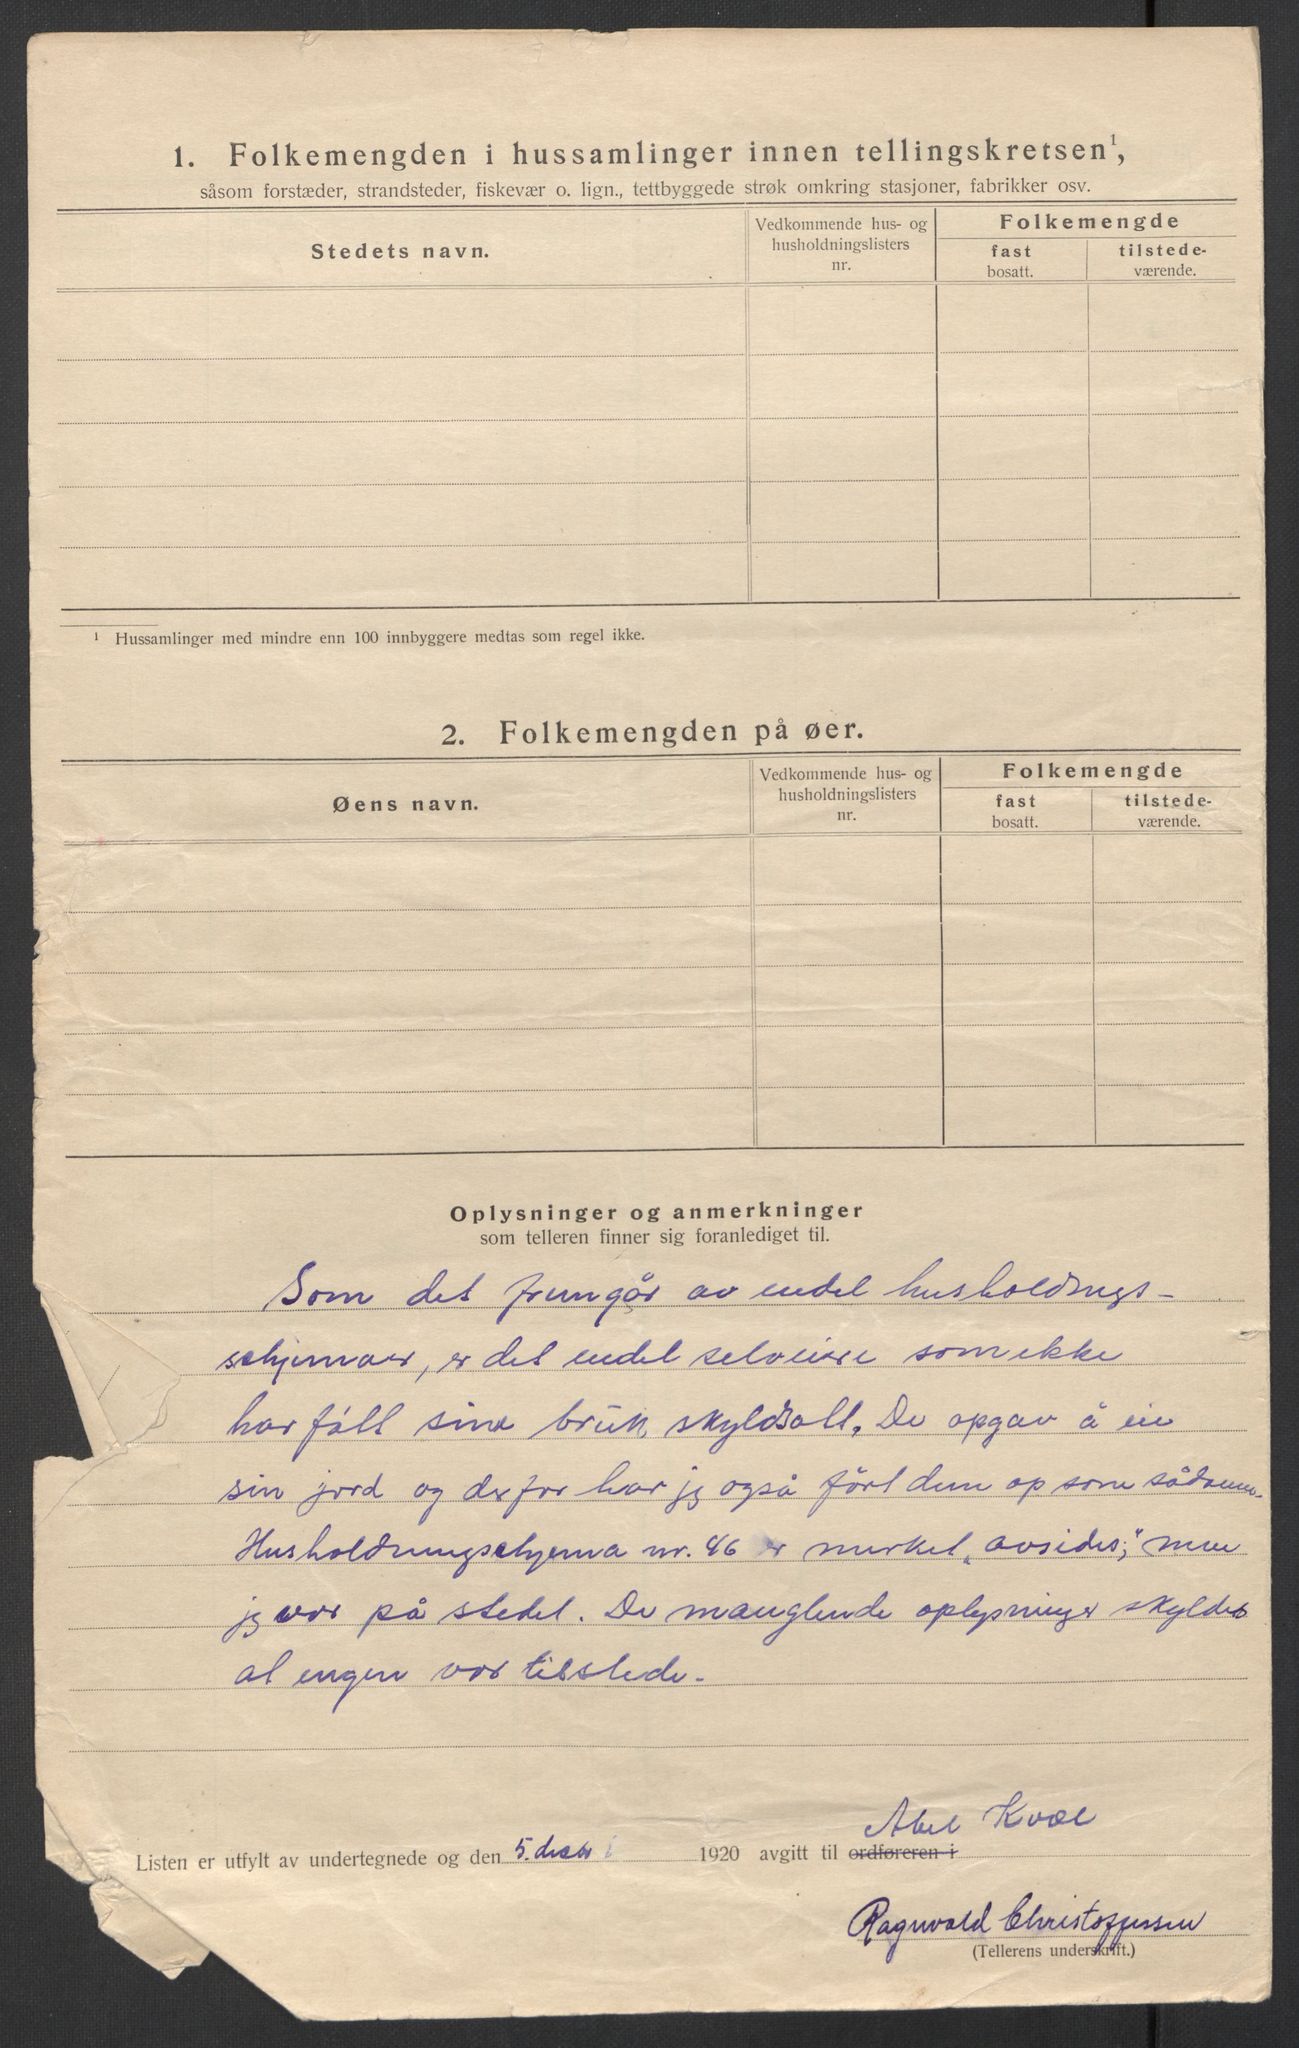 1. Folkemengden i hussamlinger innen tellingskretsen¹,
såsom forstæder, strandsteder, fiskevær o. lign., tettbyggede strøk omkring stasjoner, fabrikker osv.
Stedets navn.
Vedkommende hus- og
husholdningslisters
nr.
Folkemengde
fast
bosatt.
tilstede-
værende.
¹ Hussamlinger med mindre enn 100 innbyggere medtas som regel ikke.
2. Folkemengden på øer.
Øens navn.
Vedkommende hus- og
husholdningslisters
nr.
Folkemengde
fast
bosatt.
tilstede-
værende.
Oplysninger og anmerkninger
som telleren finner sig foranlediget til.
Som det fremgår av endel husholdnings-
schjemaer, er det endel selveiere som ikke
har fått sine bruk skyldsatt. De opgav å eie
sin jord og derfor har jeg også ført dem op som sådanne.
Husholdningschjema nr. 46 er merket "avsides", men
jeg var på stedet. De manglende oplysninger skyldes
at ingen var tilstede.
Listen er utfylt av undertegnede og den 5. desbr 1920 avgitt til ordføreren i Abel Kvæl
Ragnvald Christoffersen
(Tellerens underskrift.)